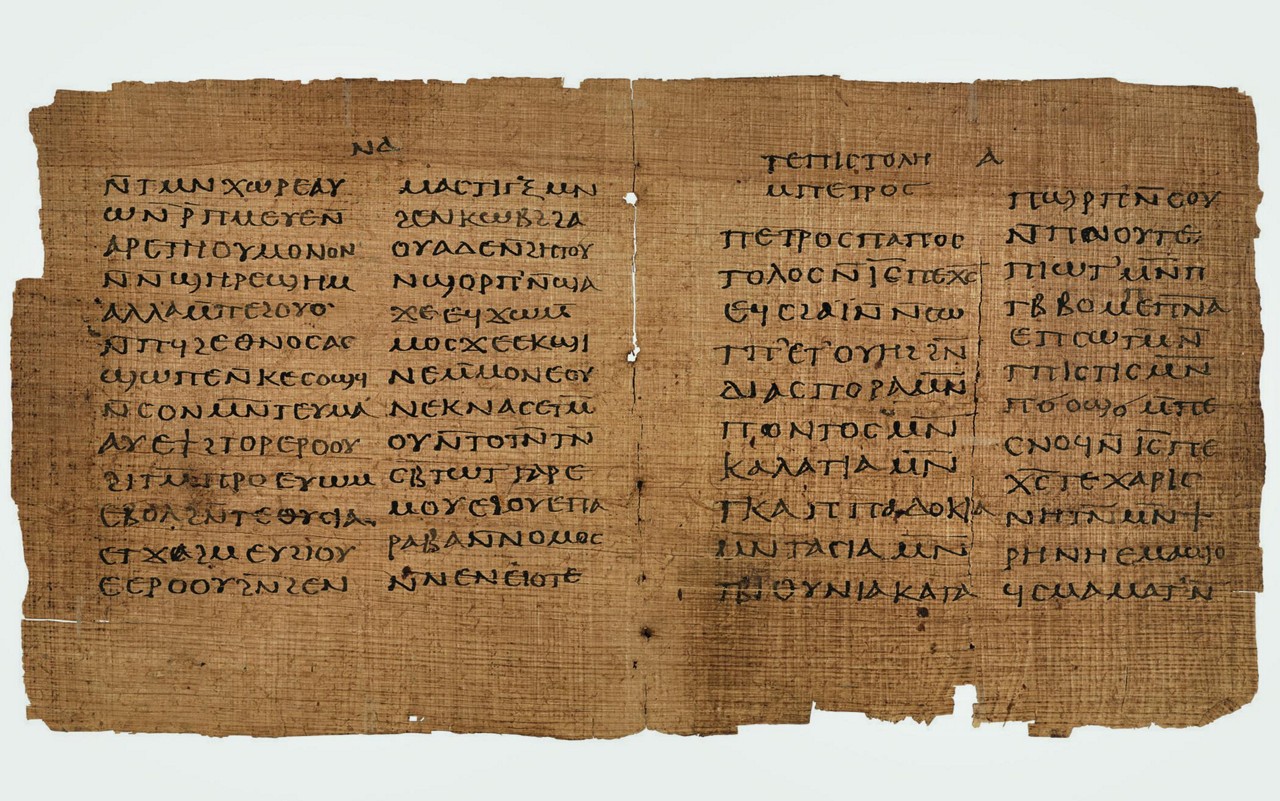 ⲛⲁ
ⲛ̄ⲧⲙⲛⲭⲱⲣⲉⲁⲩ
ⲱⲛ̄ⲣ̄ⲡⲙⲉⲩⲉⲛ̄
ⲁⲣⲉⲧⲏⲟⲩⲙⲟⲛⲟⲛ
ⲛ̄ⲛ̄ϣⲏⲣⲉϣⲏⲙ
ⲁⲗⲗⲁⲙ̄ⲡⲉϩⲟⲩⲟ
ⲛ̄ⲡϥϩⲉⲑⲛⲟⲥⲁⲥ
ϣⲱⲡⲉⲛ̄ⲕⲉⲥⲟϣϥ
ⲛ̄ⲥⲟⲛⲙⲛ̄ⲧⲉⲩⲙⲁ
ⲁⲩⲉϯϩⲧⲟⲣⲉⲣⲟⲟⲩ
ϩⲓⲧⲙ̄ⲡⲣⲟⲉⲩⲱⲙ
ⲉⲃⲟⲗϩⲛ̄ⲧⲉⲑⲩⲥⲓⲁ
ⲉⲧϫⲁϩⲙⲉⲩϩⲓⲟⲩ
ⲉⲉⲣⲟⲟⲩϩⲛ̄ϩⲉⲛ
ⲙⲁⲥⲧⲓⲅⲝⲙⲛ
ϩⲉⲛⲕⲱⲃϩϩⲁ
ⲟⲩⲁⲇⲉⲛ̄ϩⲏⲧⲟⲩ
ⲛϣⲟⲣⲡ̄ⲛ̄ϣⲁ
ϫⲉⲉϥϫⲱⲙ̄
ⲙⲟⲥϫⲉⲉⲕϣⲓ
ⲛⲉⲙ̄ⲙⲟⲛⲉⲟⲩ
ⲛⲉⲕⲛⲁⲥⲉⲧⲙ̄
ⲟⲩⲛ̄ⲧⲟⲧⲛ̄ⲧⲛ̄
ⲥⲃⲧⲱⲧⲅⲁⲣⲉ
ⲙⲟⲩⲉϩⲟⲩⲉⲡⲁ
ⲣⲁⲃⲁⲛ̄ⲛⲟⲙⲟⲥ
ⲛ̄ⲛⲉⲛⲉⲓⲟⲧⲉ
ⲧⲉⲡⲓⲥⲧⲟⲗⲏ ⲁ
ⲙⲡⲉⲧⲣⲟⲥ
ⲡⲉⲧⲣⲟⲥⲡⲁⲡⲟⲥ
ⲧⲟⲗⲟⲥⲛ̄ⲓ̄ⲥ̄ⲡⲉⲭ̄ⲥ̄
ⲉϥⲥϩⲁⲓ̈ⲛ̄ⲛ̄ⲥⲱ
ⲧⲡ̄ⲉⲧⲟⲩⲏϩϩⲛ̄
ⲇⲓⲁⲥⲡⲟⲣⲁⲙⲛ̄
ⲡⲟⲛⲧⲟⲥⲙⲛ̄
ⲕⲁⲗⲁⲧⲓⲁⲙⲛ̄
ⲧⲕⲁⲡⲡⲁⲇⲟⲕⲓⲁ
ⲙⲛ̄ⲧⲁⲥⲓⲁⲙⲛ̄
ⲧⲃⲓⲑⲩⲛⲓⲁⲕⲁⲧⲁ
ⲡϣⲣ̄ⲡ̄ⲛ̄ⲥⲟⲩ
ⲛ̄ⲡⲛⲟⲩⲧⲉ
ⲡⲓⲱⲧⲙⲛ̄ⲡ
ⲧⲃ̄ⲃⲟⲙⲉⲡ̄ⲛ̄ⲁ̄
ⲉⲡⲥⲱⲧⲙ̄ⲛ̄
ⲧⲡⲓⲥⲧⲓⲥⲙⲛ̄
ⲡϭⲟϣϭ̄ⲙ̄ⲡⲉ
ⲥⲛⲟϥⲛ̄ⲓ̄ⲥ̄ⲡⲉ
ⲭ̄ⲥ̄ⲧⲉⲭⲁⲣⲓⲥ
ⲛⲏⲧⲛ̄ⲙⲛ̄ϯ
ⲣⲏⲛⲏⲉⲙⲁϣⲟ
ϥⲥⲙⲁⲙⲁⲧⲛ̄